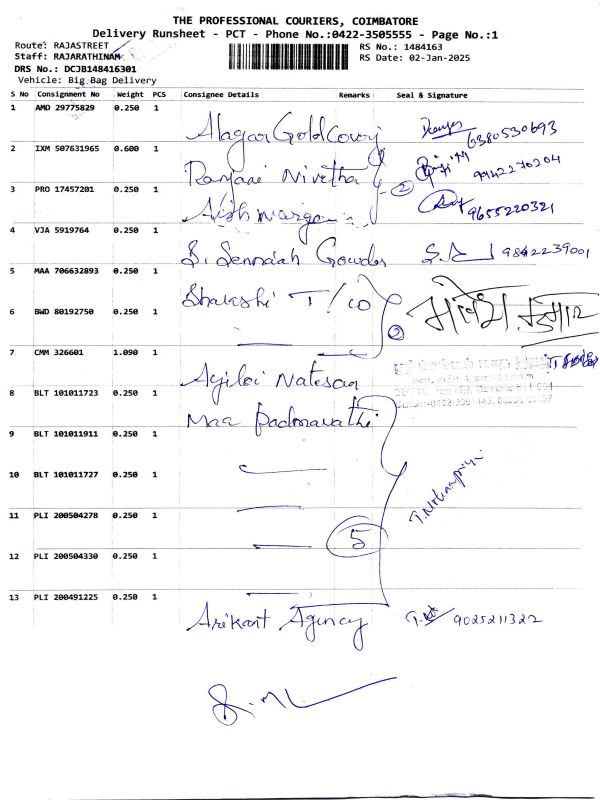 THE PROFESSIONAL COURIERS, COIMBATORE
Delivery Runsheet - PCT - Phone No.:0422-3505555 - Page No.:1
Route: RAJASTREET
RS No.: 1484163
Staff: RAJARATHINAM
RS Date: 02-Jan-2025
DRS No.: DCJB148416301
Vehicle: Big Bag Delivery
S No Consignment No Weight PCS Consignee Details Remarks Seal & Signature
1 AMD 29775829 0.250 1
Alagar Gold Covery 6380530693
2 IXM 507631965 0.600 1
Ranjani Nivetha 2 9942270204
3 PRO 17457201 0.250 1
Aishwarya 9655220321
4 VJA 5919764 0.250 1
S. Sennaiah Gowder 9842239001
5 MAA 706632893 0.250 1
Sharashi T/co
6 BWD 80192750 0.250 1
2
7 CMM 326601 1.090 1
Ayiloi Natesan
8 BLT 101011723 0.250 1
Maa Padmavathi
9 BLT 101011911 0.250 1
10 BLT 101011727 0.250 1
11 PLI 200504278 0.250 1
5
12 PLI 200504330 0.250 1
13 PLI 200491225 0.250 1
Arikant Agency 9025211322